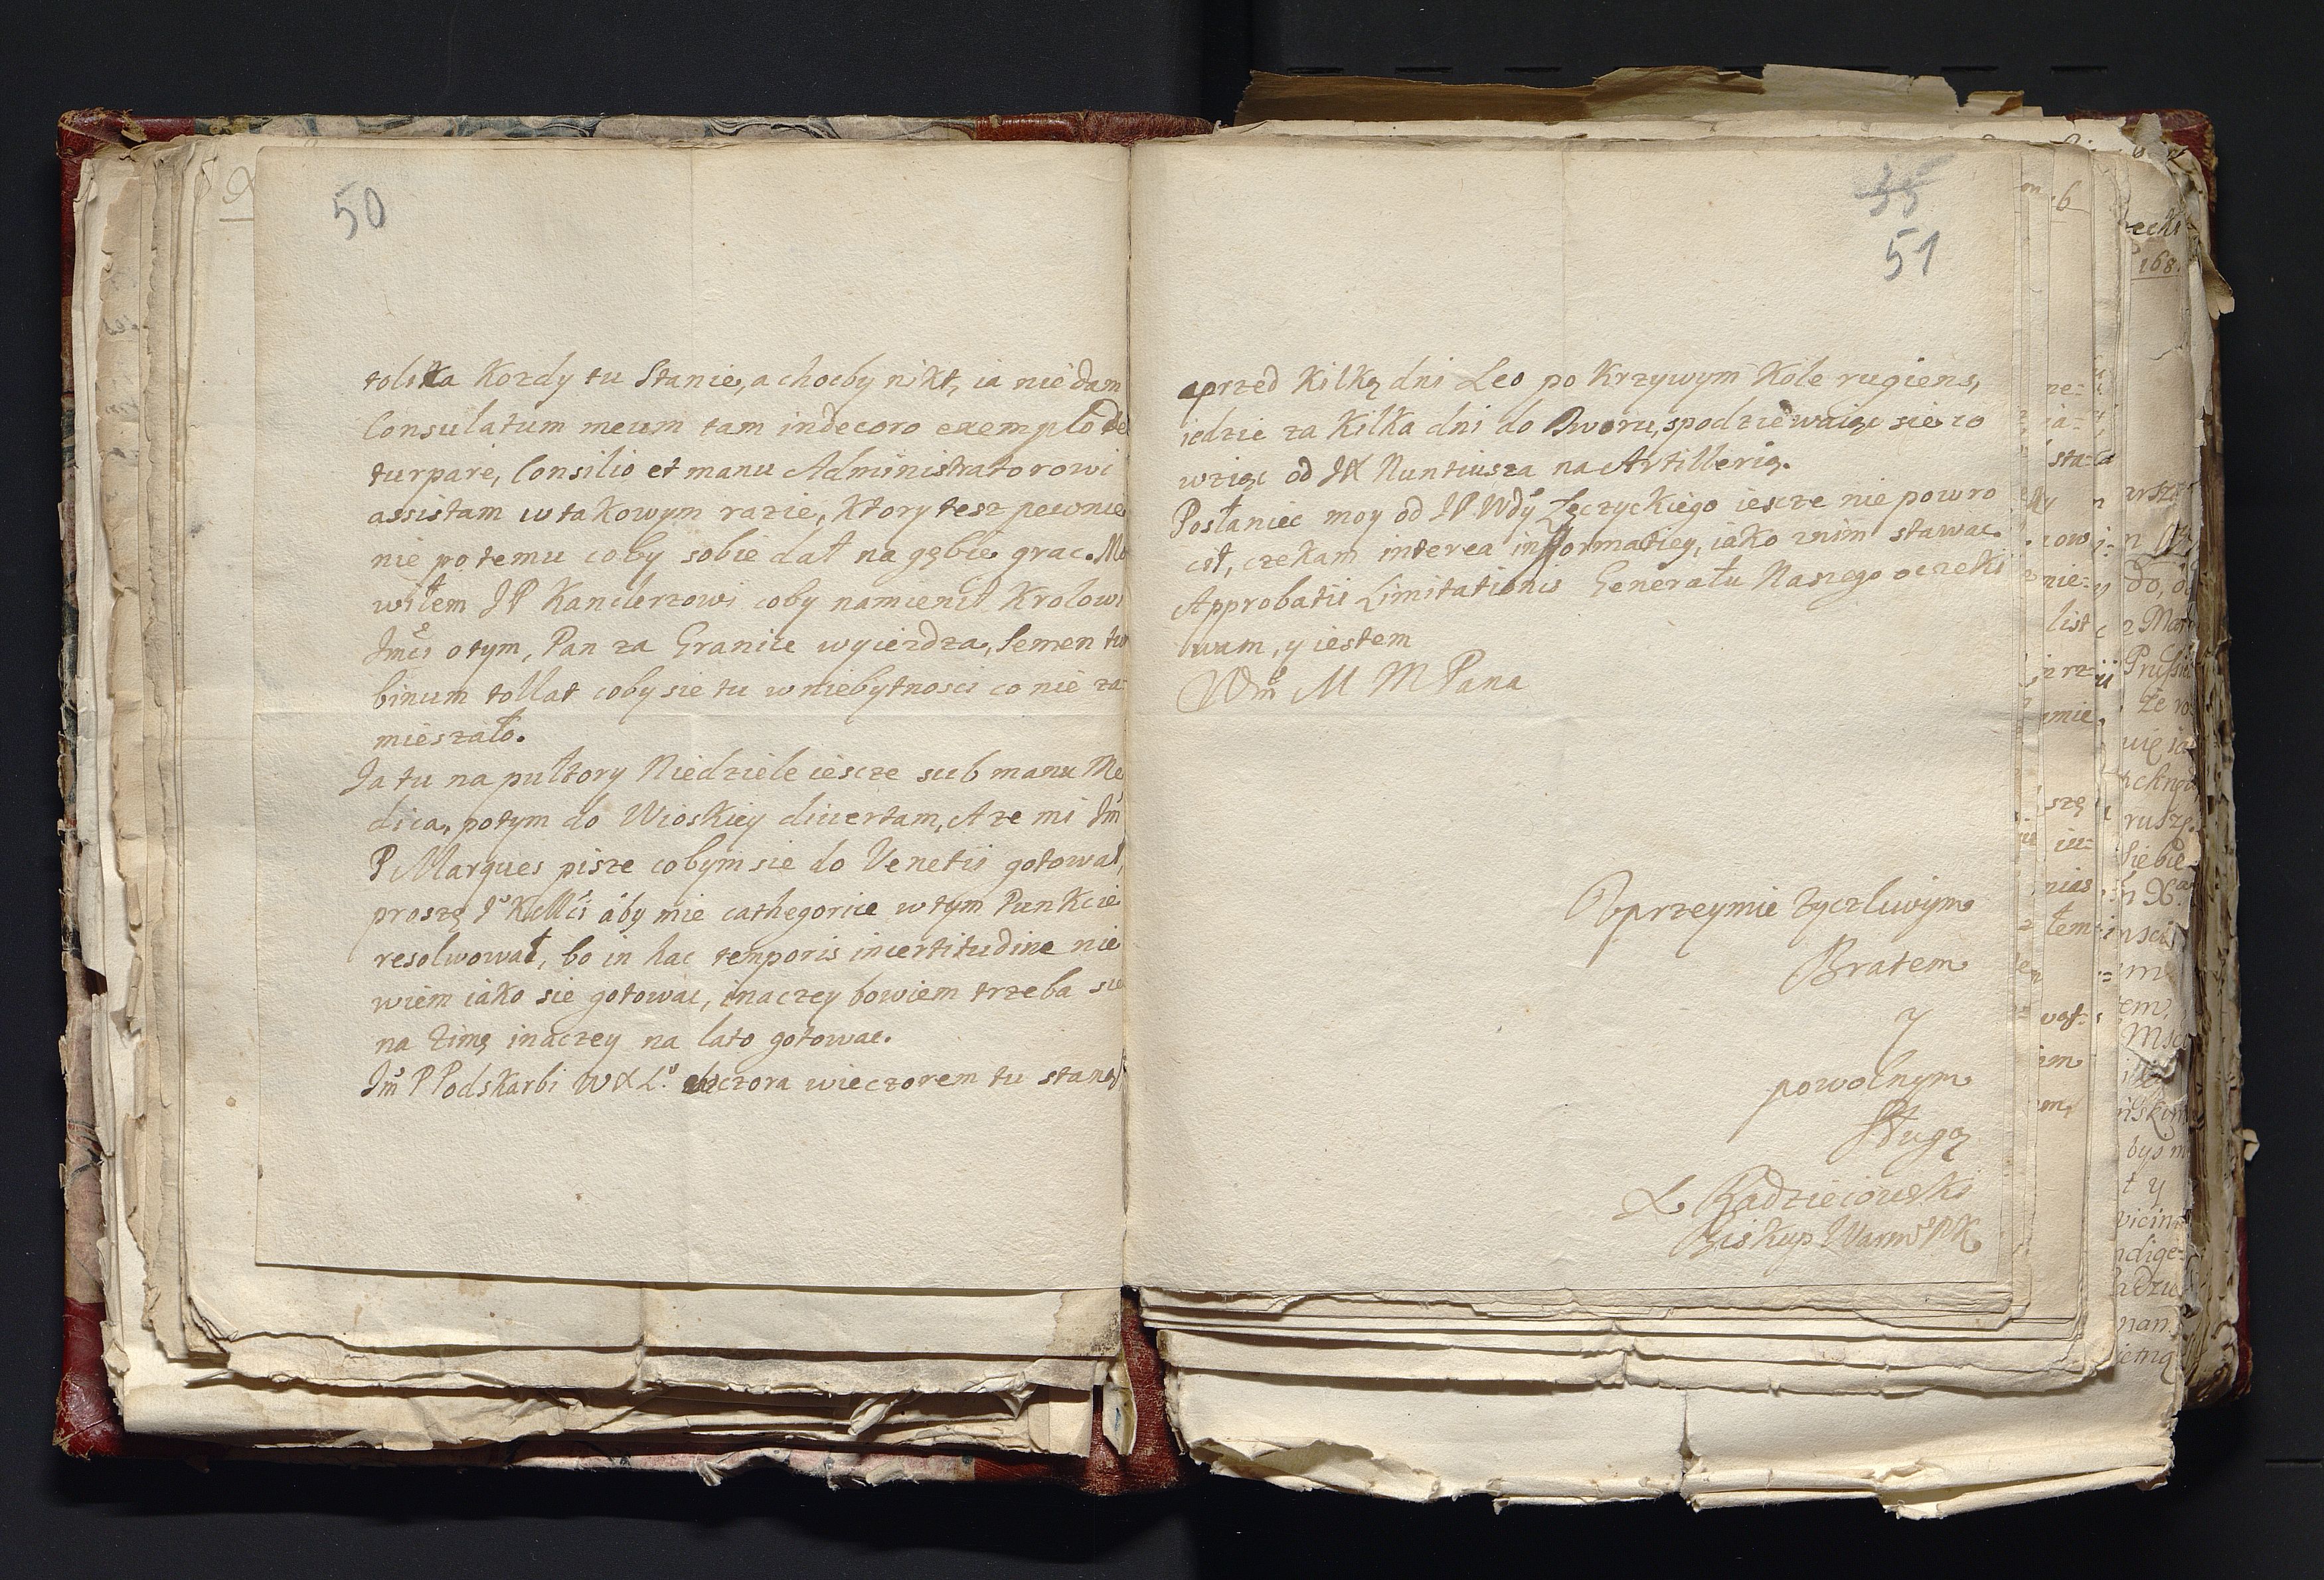 50
toliKa Kozdy tu Stanie, a choćby nikt, ia nie dam
Consulatum meum tam indecoro exemplo de
turpare, Consilio et manu Administratorowi
assistam w takowym razie, Ktory tesz pewnie
nie po temu coby sobie dał na gębie grac. Mo
wiłem JP Kanclerzowi coby namienił Krolowi
Jmci o tym, Pan za Granice wyiezdza, Semen tur
binum tollat coby sie tu w niebytnosci co nie za
mieszało.
Ja tu na pułtory Niedziele iescze sub manu Me
dica, potym do Wioskiey divertam, A ze mi Jm
P Marques pisze cobym sie do Venetii gotował,
proszę J KMci aby mie cathegorice w tym Punkcie
resolwował, bo in hac temporis incertitudine nie
wiem iako sie gotowac, inaczey bowiem trzeba sie
na Zimę inaczey na lato gotowac.
Jm P Podskarbi WXL wczora wieczorem tu stanął
51
a przed Kilką dni Leo po Krzywym Kole rugiens,
iedzie za Kilka dni do Dworu, spodziewaiąc sie co
wziąc od JX Nuntiusza na Artillerią.
Posłaniec moy od JP Wdy Łęczyckiego iescze nie powro
cił, czekam interea informatiey, iako znim stawac.
Approbatii Limitationis Generału Naszego oczeki
wam, y iestem
Wm M M Pana
Uprzeymie Zyczliwym
Bratem
y
powolnym
Sługą
X Radzieiowski
Biskup Warm PK